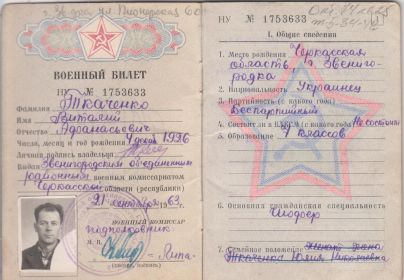 г. Умань ул. Пионерская 60
ВОЕННЫЙ БИЛЕТ
НУ № 1753633
Фамилия Ткаченко
Имя Виталий
Отчество Афанасьевич
Число, месяц и год рождения 4 декабря 1926
Личная подпись владельца
Выдан Звенигородским объединенным
районным военным комиссариатом
Черкасской области (республики)
21 сентября 1963 г.
ВОЕННЫЙ КОМИССАР
подполковник
М. П.
(звание, подпись)
НУ № 1753633
I. Общие сведения
1. Место рождения Черкасская
область, г. Звениго-
родка
2. Национальность Украинец
3. Партийность (с какого года)
Беспартийный
4. Состоит ли в ВЛКСМ с какого года Не состоит
5. Образование 7 классов
6. Основная гражданская специальность
Шофер
7. Семейное положение женат жена
Ткаченко Юлия Николаевна